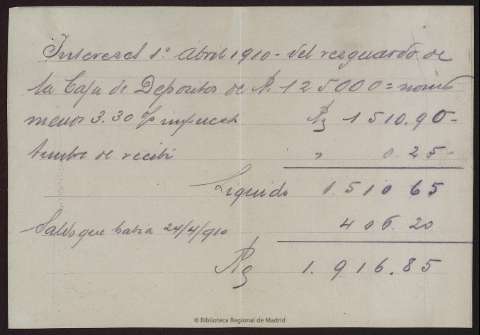 Intereses 1º Abril 1910 - del resguardo de
la Caja de Depositos de P. 125000 = nomls
menos 3.30 % impuesto Ptas 1510.90-
timbre de recibi " 0.25-
Líquido 1.510 65
Saldo que habia 24/4/910 406.20
Ptas 1.916.85
© Biblioteca Regional de Madrid